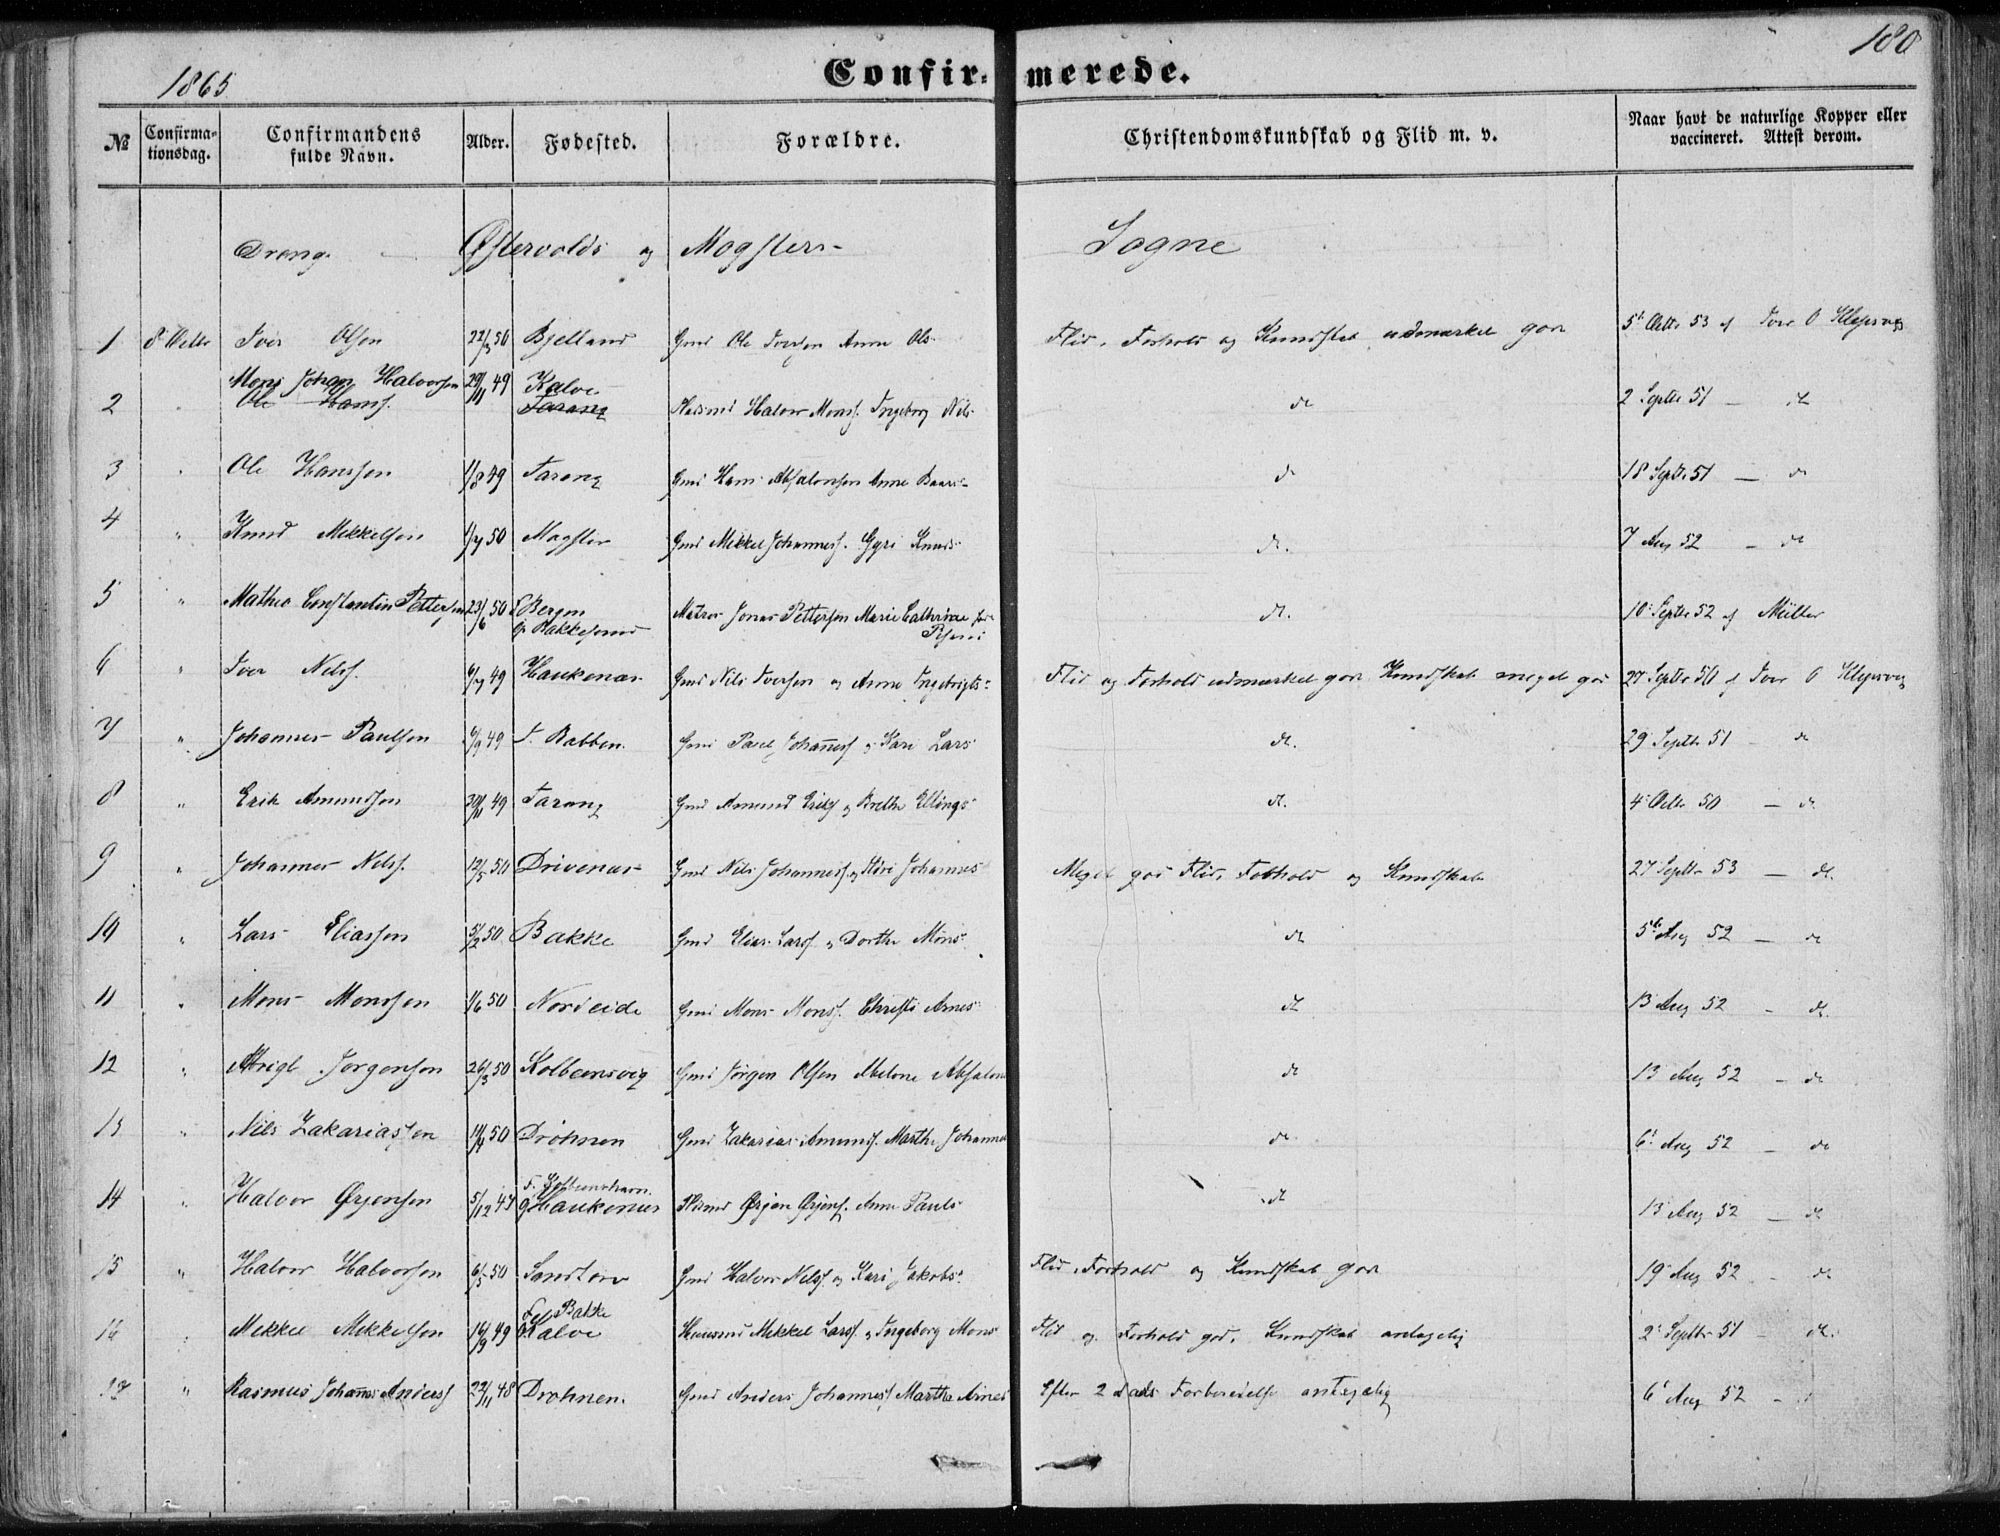 180
1865
Confir- merede.
№ Confirma-tionsdag. Confirmandens fulde Navn. Alder. Fødested. Forældre. Christendomskundskab og Flid m. v. Naar havt de naturlige Kopper eller vaccineret. Attest derom.
Dreng. Østervolds og Møgsters Sogne
1 8 Octbr Iver Olsen 50 Bjelland Gmd Ole Iversen Anne Ols- Flid, Forhold og Kundskab udmærket god 5t Octbr 53 af Iver O Klepsvig
Mons Johan Halvorsen 29/11 49 Kalve
2 " Ole Hans. Tarang Huusmd Halvor Monss. Ingeborg Nils- do 2 Septbr 51 — do
3 " Ole Hanssen 1/8 49 Tarang Gmd Hans Absalonsen Anne Baars- do 18 Septbr 51 — do
4 " Knud Mikkelsen 1/7 50 Magster Gmd Mikkel Johanness. Gyri Knuds- do. 7 Aug 52 — do
5 " Matheo Constantin Pettersen 23/6 50 F Bergen Matros Jonas Pettersen Marie Cathrine do. 10 Septbr 52 af Müller
g Bakkesund
6 " Iver Nilss. 6/7 49 Haukenæs Gmd Nils Iversen og Anne Ingebrigts- Flid og Forhold udmærket god Kundskab meget god 27 Septbr 50 af Iver O Klepsvig
7 " Johannes Paulsen 6/9 49 S. Rabben. Gmd Paul Johanness og Kari Lars- do. 29 Septbr 51 — do
8 " Erik Amundsen 30/11 49 Tarang Gmd Amund Eriks og Brethe Ellings- do. 4 Octbr 50 — do.
9 " Johannes Nilss. 12/5 50 Drivenæs Gmd Nils Johanness og Johannes- Meget god Flid, Forhold og Kundskab 27 Septbr 53 — do.
10 " Lars Eliassen 5/2 50 Bakke Gmd Elias Larss og Dorthe Mons- do 5t Aug 52 — do
11 " Mons Monssen 1/6 50 Nordeide Gmd Mons Monss. Christi Arnes- do 13 Aug 52 — do.
12 " Jorgensen 26/3 50 Kolbeensvig Gmd Jörgen Olsen Abelone Absalons do 13 Aug 52 — do
13 " Nils Zakariassen 50 Dröhnen Gmd Zakarias Amunds. Marthe Johannes do. 6t Aug 52 — do
14 " Halvor Ørjensen 5/12 g Haukenæs Huusmd Ørjen Ørjens. Anne Pauls- do 13 Aug 52 — do
15 " Halvor Halvorsen 6/5 50 Sandtorv Gmd Halvor Nilss. og Kari Jakobs- Flid, Forhold og Kundskab god 19 Aug 52 — do
Bakke
16 " Mikkel Mikkelsen 16/9 49 Kalve Huusmd Mikkel Larss. og Ingeborg Mons- Flid og Forhold god, Kundskab antagelig 2 Septbr 51 — do.
17 " Rasmus Johannes Anderss 22/11 48 Drøhnen. Gmd Anders Johanness Marthe Arnes Efter 2 Aars Forberedelse antagelig 6t Aug 52 —